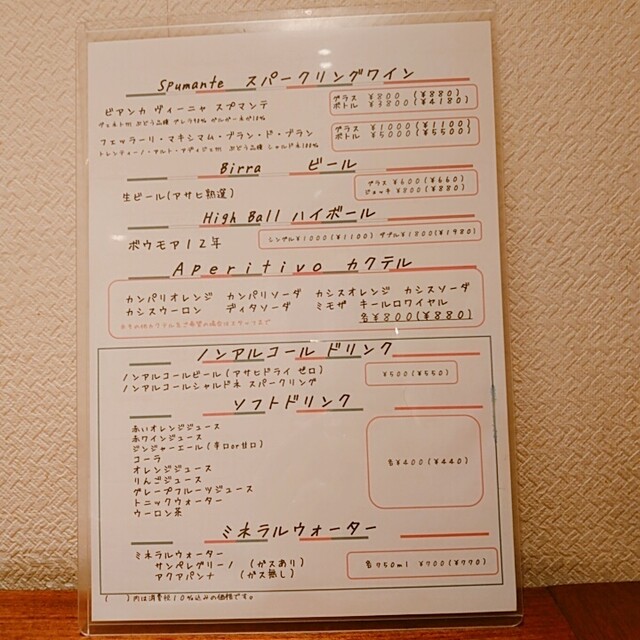 Spumante スパークリングワイン
ビアンカ ヴィーニャ スプマンテ
グラス ¥800 (¥880)
ボトル ¥3800 (¥4180)
フェッラーリ・マキシマム・ブラン・ド・ブラン
グラス ¥1000 (¥1100)
ボトル ¥5000 (¥5500)
トレンティーノ・アルト・アディジェ州 ぶどう品種 シャルドネ100%
Birra ビール
生ビール(アサヒ熟選)
グラス ¥600(¥660)
ジョッキ ¥800(¥880)
High Ball ハイボール
ボウモア12年
シングル¥1000(¥1100) ダブル¥1800(¥1980)
Aperitivo カクテル
カンパリオレンジ カンパリソーダ カシスオレンジ カシスソーダ
カシスウーロン ディタソーダ ミモザ キールロワイヤル
各¥800(¥880)
ノンアルコール ドリンク
ノンアルコールビール(アサヒドライ ゼロ)
ノンアルコールシャルドネ スパークリング
¥500(¥550)
ソフトドリンク
赤いオレンジジュース
赤ワインジュース
ジンジャーエール(辛口or甘口)
コーラ
オレンジジュース
りんごジュース
グレープフルーツジュース
トニックウォーター
ウーロン茶
各¥400(¥440)
ミネラルウォーター
ミネラルウォーター
サンペレグリーノ (ガスあり)
アクアパンナ (ガス無し)
各750ml ¥700(¥770)
( )内は消費税10%込みの価格です。